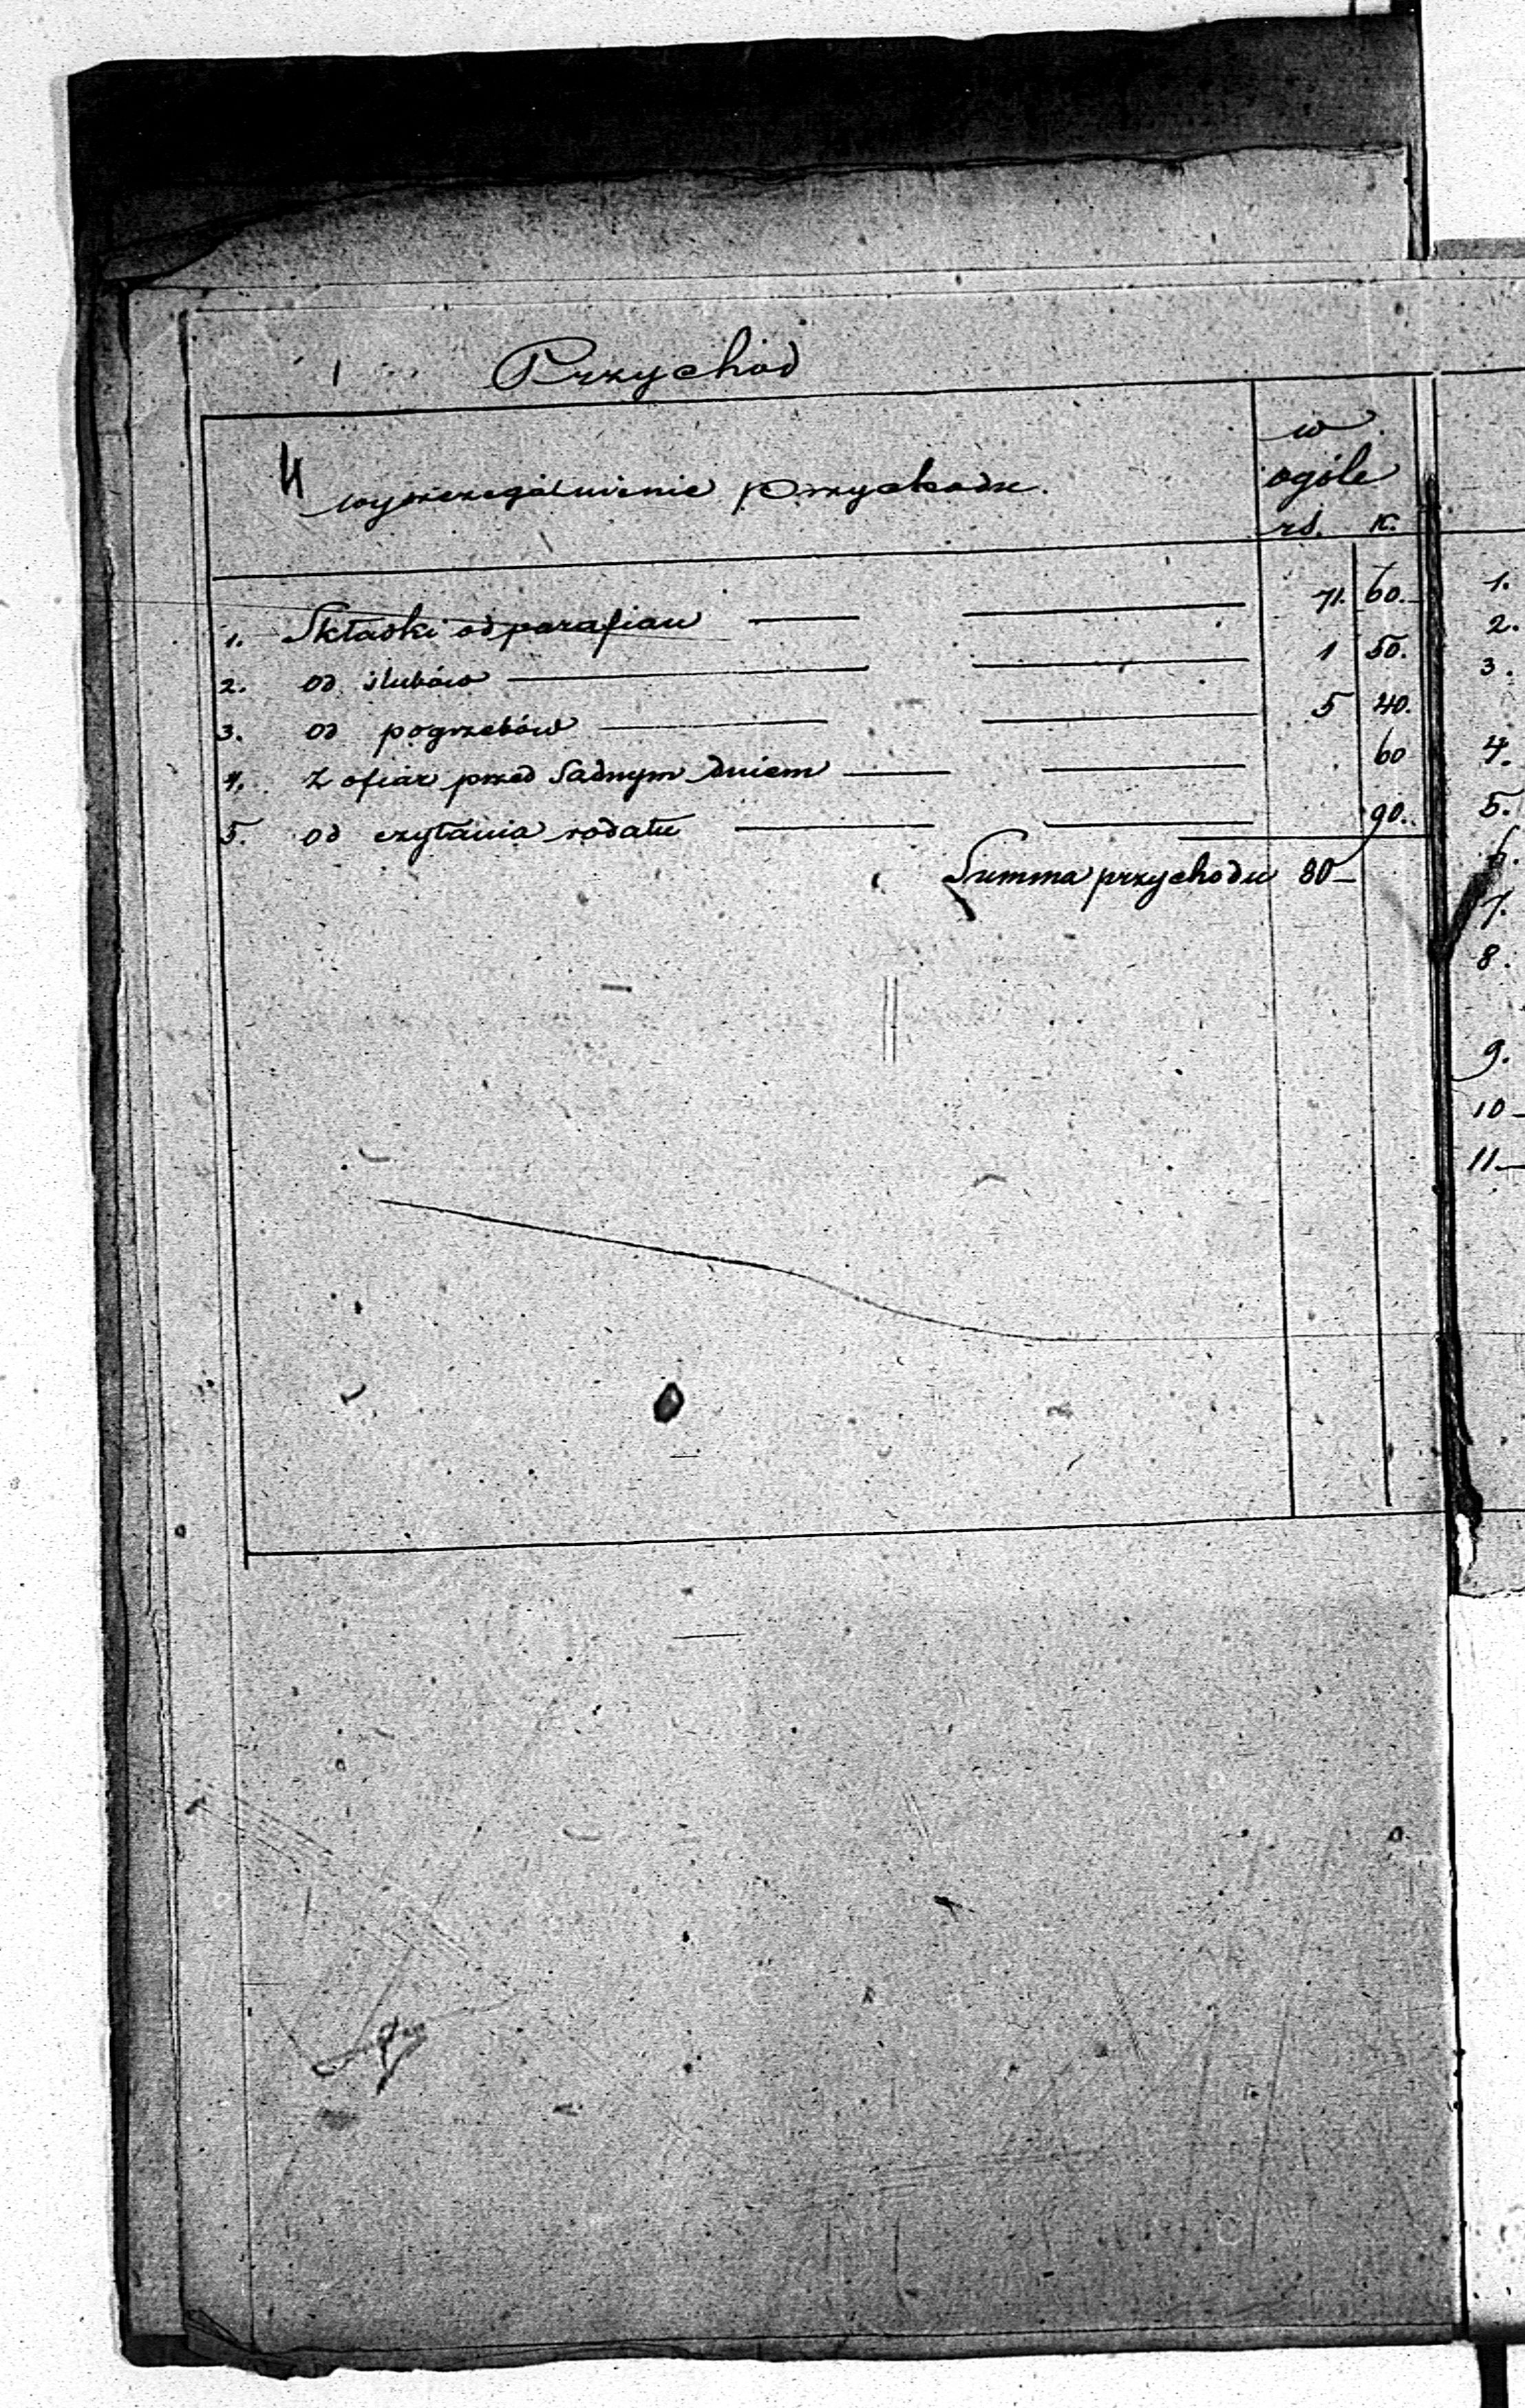 Przychód
wyszczególnienie przychodu.
w
ogóle
rs. k.
1. Składki od parafian 71. 60.
2. od ślubów 1 50.
3. od pogrzebów 5 40.
4. Z ofiar przed Sadnym dniem 60
5. od czytania rodału 90.
Summa przychodu 80
1.
2.
3.
4.
5.
6.
7.
8.
9.
10
11